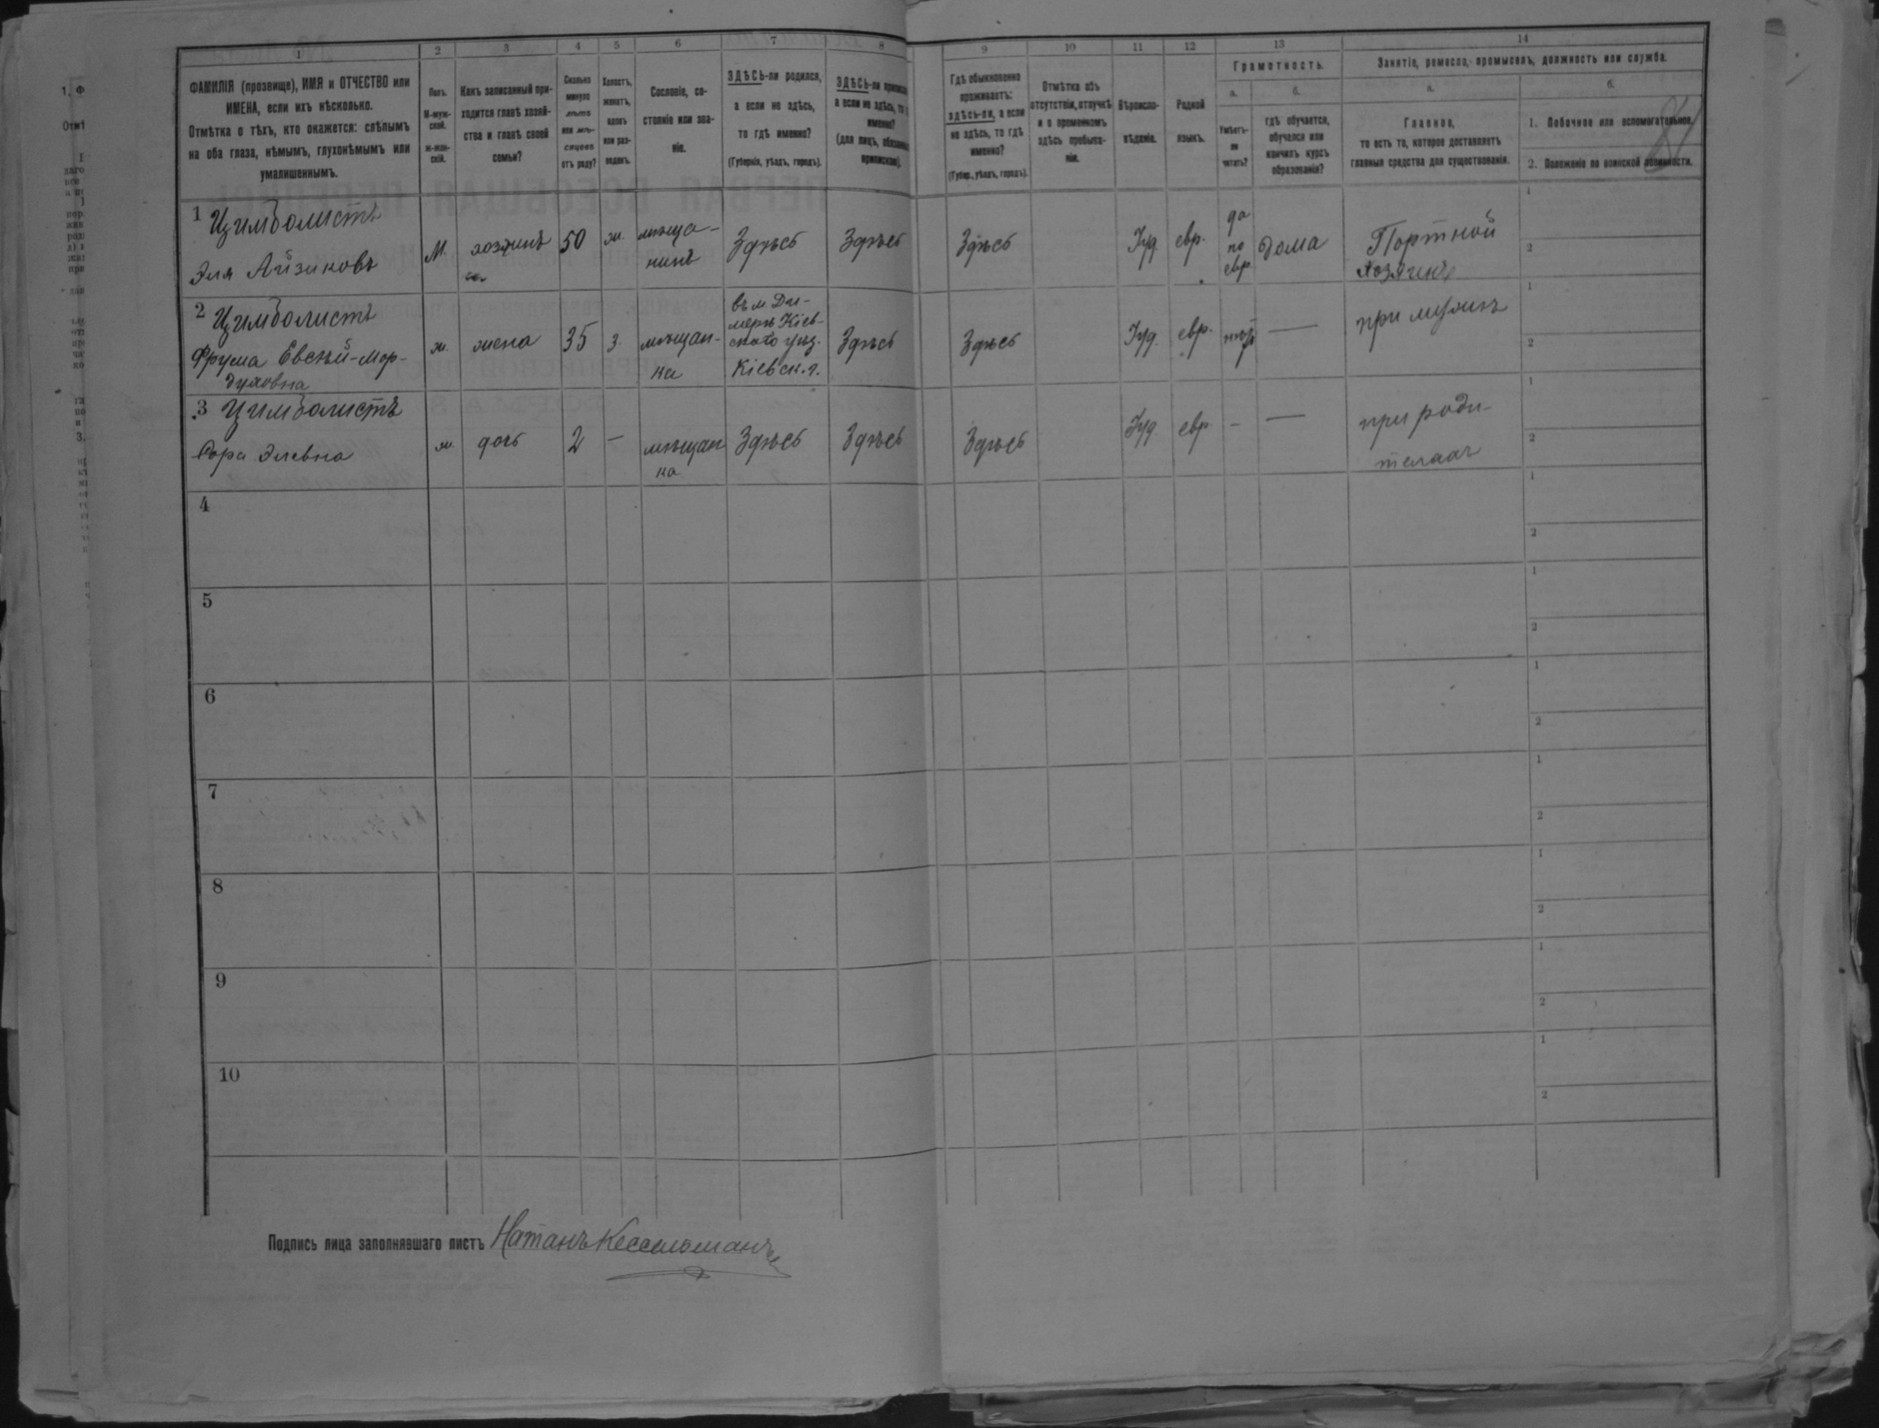 1 2 3 4 5 6 7 8 9 10 11 12 13 14
ФАМИЛІЯ (прозвище), ИМЯ и ОТЧЕСТВО или
ИМЕНА, если ихъ нѣсколько.
Отмѣтка о тѣхъ, кто окажется: слѣпымъ
на оба глаза, нѣмымъ, глухонѣмымъ или
умалишеннымъ.
Полъ.
М-муж-
ской.
ж-жен-
скій.
Какъ записанный при-
ходится главѣ хозяй-
ства и главѣ своей
семьи?
Сколько
минуло
лѣтъ
или мѣ-
сяцевъ
отъ роду?
Холостъ,
женатъ,
вдовъ
или раз-
веденъ.
Сословіе, со-
стояніе или зва-
ніе.
ЗДѢСЬ-ли родился,
а если не здѣсь,
то гдѣ именно?
(Губернія, уѣздъ, городъ).
ЗДѢСЬ-ли
а если не здѣсь, то
именно?
(для лицъ,
Гдѣ обыкновенно
проживаетъ:
здѣсь-ли, а если
не здѣсь, то гдѣ
именно?
(Губер., уѣздъ, городъ).
Отмѣтка объ
отсутствіи, отлучкѣ
и о временномъ
здѣсь пребыва-
ніи.
Вѣроиспо-
вѣданіе.
Родной
языкъ.
Грамотность.
а.
Умѣетъ-
ли
читать?
б.
гдѣ обучается,
обучался или
кончилъ курсъ
образованія?
Занятіе, ремесло, промыселъ, должность или служба.
а.
Главное,
то есть то, которое доставляетъ
главныя средства для существованія.
б.
1. Побочное или вспомогательное.
2. Положеніе по воинской повинности.
1 Цимболистъ
Эля Айзиковъ
М. хозяинъ 50 ж. мѣща-
нинъ
Здѣсь Здѣсь Здѣсь Іуд евр.
да
по
евр
дома
Портной
хозяинъ
2 Цимболистъ
Фрума Евсѣй-Мор-
духовна
ж. жена 35 з. мѣщан-
ка
въ м Ди-
мерѣ Кіев-
скаго уѣз.
Кіевск. г.
Здѣсь Здѣсь Іуд. евр. — при мужѣ
3 Цимболистъ
Сора Элевна
ж. дочь 2 — мѣщан
ка
Здѣсь Здѣсь Здѣсь Іуд. евр - —
при роди-
теляхъ
4
5
6
7
8
9
10
Подпись лица заполнявшаго листъ Натанъ Кессельманъ